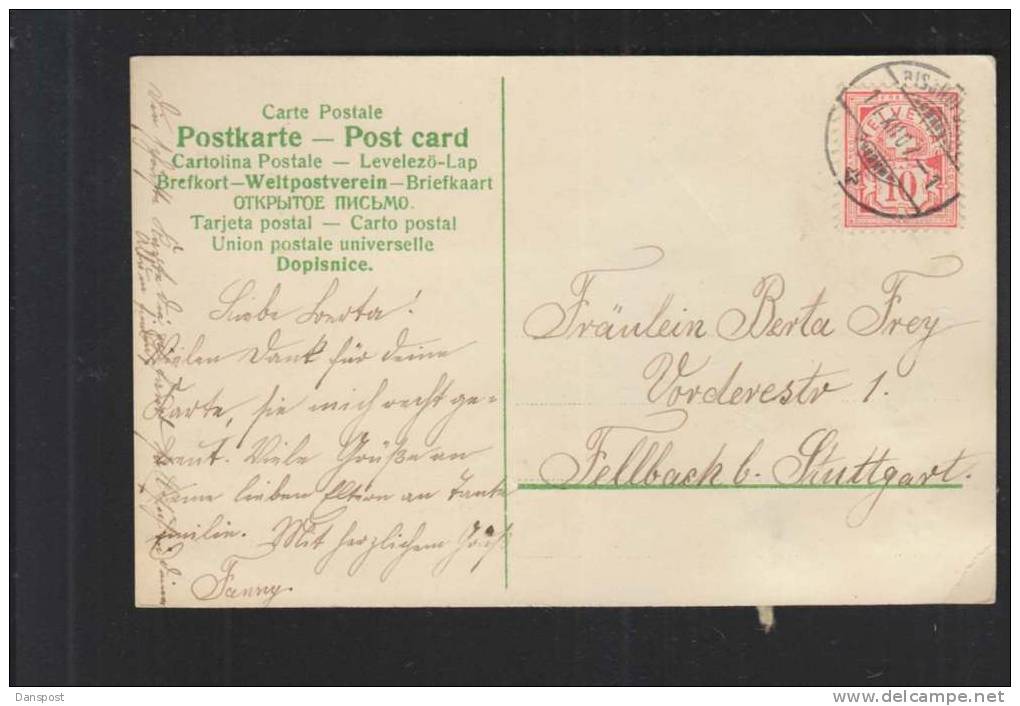 Carte Postale
Postkarte — Post card
Cartolina Postale — Levelező-Lap
Brefkort — Weltpostverein — Briefkaart
ОТКРЫТОЕ ПИСЬМО.
Tarjeta postal — Carto postal
Union postale universelle
Dopisnice.
Liebe Berta!
Vielen Dank für deine
Karte, sie mich recht ge-
freut. Viele Grüße an
deine lieben Eltern an Tante
Emilie. Mit herzlichem Gruß
Fanny.
HELVETIA
10
XII 07
Fräulein Berta Frey
Vorderestr 1.
Fellbach b. Stuttgart.
Danspost
www.delcampe.net